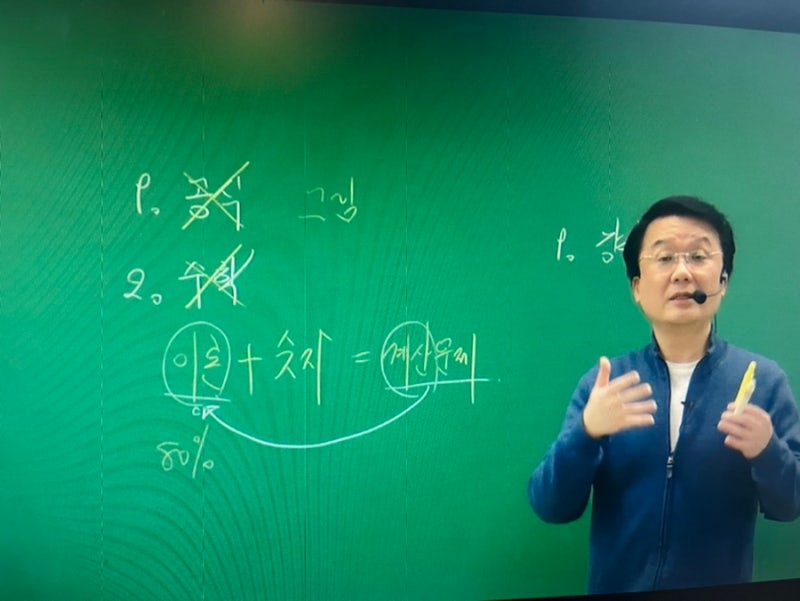 1. 공식 그림
2. 수학
이론 + 숫자 = 계산문제
80%
1.